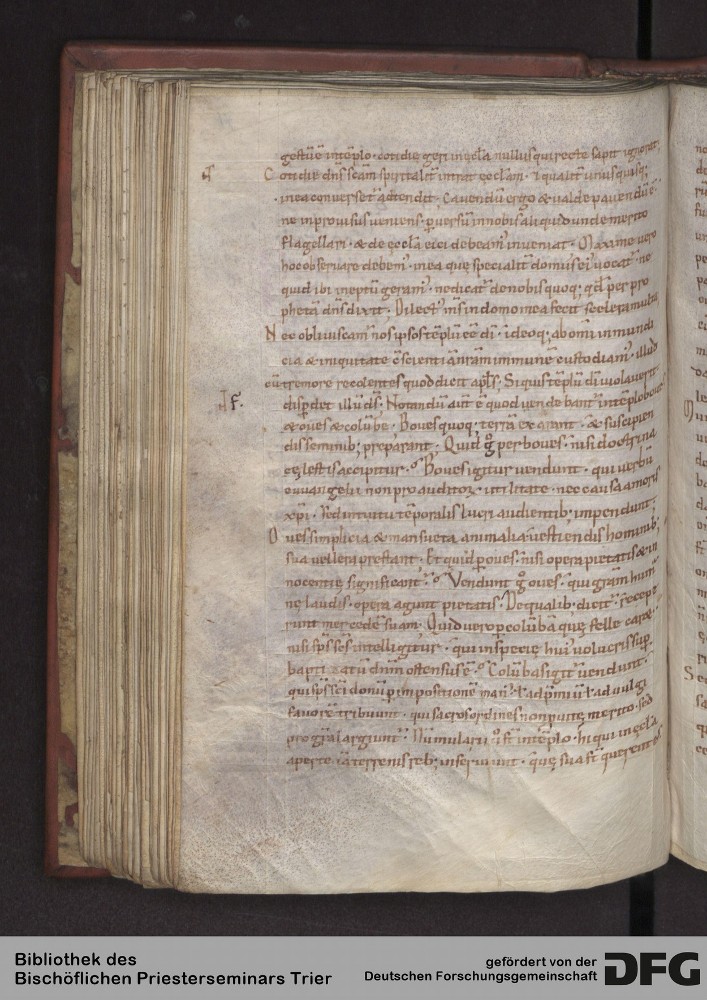 gestū ē ī tēplo · cotidie geri in ęcl̄a nullus qui recte sapit ignorat;
Cotidie dn̄s scām spiritalit̄ intrat ęccl̄am · & qualit̄ unusquisq;
in ea converset̄ adtendit · Cavendū ergo & valde pavendū ē
ne inprovisus veniens · pversū in nobis aliquid unde merito
flagellari · & de ęccl̄a eici debeam᾽ inveniat · Maxime vero
hoc observare debem᾽ · in ea que specialit̄ dom᾽ ei᾽ vocat̄ · ne
quid ibi ineptū geram᾽ · ne dicat̄ de nobis quoq; qđ per pro
phetā dn̄s dixit; Dilect᾽ m̄s in domo mea fecit scelera multa
Nec obliviscam᾽ nos ipsos tēplū eē dī · ideoq; ab omī inmundi
cia & iniquitate cscientiā nr̄am immunē custodiam᾽ · illud
cū tremore recolentes quod dicit apl̄s; Si quis tēplū dī violaverit
disperdet illū ds̄ · Notandū aūt ē quod vendebant̄ in tēplo boves
& oves & colūbe · Boves quoq; terrā exarant · & suscipien
dis seminib; pręparant · Quid g̊ per boves · nisi doctrina
cęlestis accipitur · Boves igitur vendunt · qui verbū
euuangelii non pro auditorꝝ utilitate · nec causa amoris
xpi · sed intuitu tēporalis lucri audientib; impendunt;
Oves simplicia & mansueta animalia vestiendis hominib;
sua vellera prestant · Et quid p oves · nisi opera pietatis & in
nocentię significant̄ · Vendunt g̊ oves · qui gr̄am humā
nę laudis · opera agunt pietatis · De qualib; dicit̄ · recepe
runt mercedē suam · Quid vero p colūbā que felle caret
nisi sp̄s scs̄ intelligitur · qui in specie hui᾽ volucris sup
baptizatū dn̄m ostensus ē · Colūbas igit̄ vendunt ·
qui sp̄s sci donū p impositionē man᾽ · ł ad p̄miū ł ad vulgi
favorē tribuunt · qui sacros ordines non p vitę merito · sed
pro gr̄a largiunt̄ · Nūmularii g̊ st̄ in tēplo · hi qui in ęcl̄a
aperte iā terrenis reb; inserviunt · que sua st̄ querentes
Bibliothek des
Bischöflichen Priesterseminars Trier
gefördert von der
Deutschen Forschungsgemeinschaft
DFG